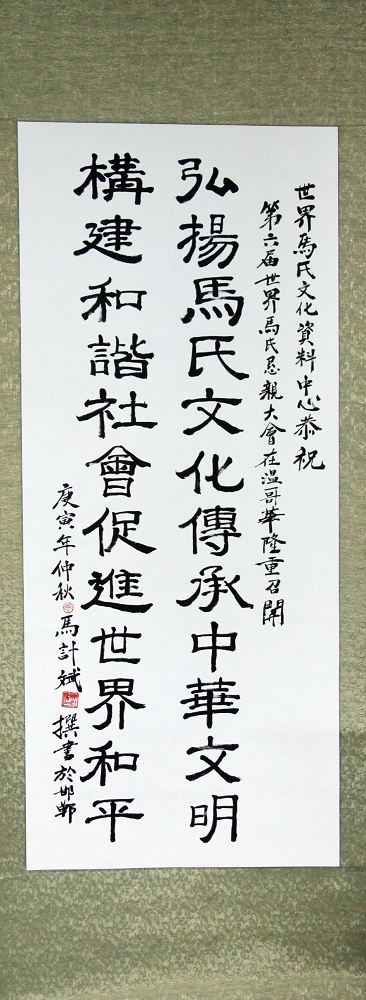 世界馬氏文化資料中心恭祝
第六届世界馬氏恳親大會在温哥華隆重召開
弘揚馬氏文化傳承中華文明
構建和諧社會促進世界和平
庚寅年仲秋馬計斌撰書於邯鄲